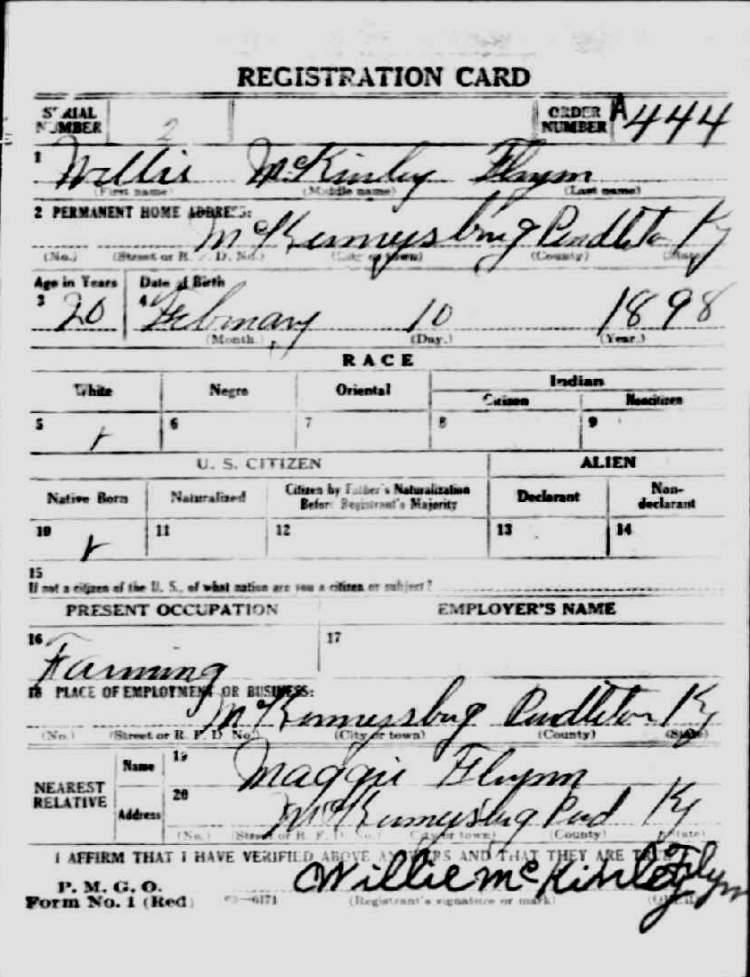 REGISTRATION CARD
SERIAL NUMBER 2 ORDER NUMBER A444
1 Willie McKinley Flynn
(First name) (Middle name) (Last name)
2 PERMANENT HOME ADDRESS:
McKenneysburg Pendleton Ky
(No.) (Street or R. F. D. No.) (City or town) (County) (State)
Age in Years Date of Birth
3 20 4 February 10 1898
(Month.) (Day.) (Year.)
RACE
White Negro Oriental Indian
Citizen Noncitizen
5 6 7 8 9
U. S. CITIZEN ALIEN
Native Born Naturalized Citizen by Father's Naturalization Before Registrant's Majority Declarant Non-declarant
10 11 12 13 14
15
If not a citizen of the U. S., of what nation are you a citizen or subject?
PRESENT OCCUPATION EMPLOYER'S NAME
16 Farming 17
18 PLACE OF EMPLOYMENT OR BUSINESS:
McKenneysburg Pendleton Ky
(No.) (Street or R. F. D. No.) (City or town) (County) (State)
NEAREST RELATIVE
Name 19 Maggie Flynn
Address 20 McKenneysburg Pend Ky
(No.) (Street or R. F. D. No.) (City or town) (County) (State)
I AFFIRM THAT I HAVE VERIFIED ABOVE ANSWERS AND THAT THEY ARE TRUE
P. M. G. O.
Form No. 1 (Red) 03-6171 Willie McKinley Flynn
(Registrant's signature or mark) (OVER)